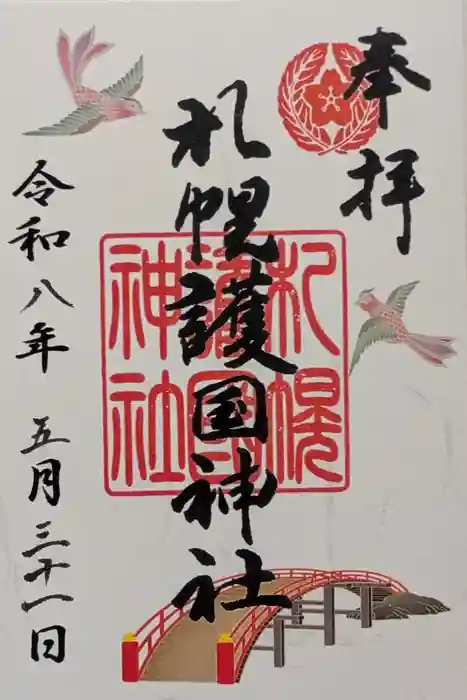 奉拝
札幌護国神社
札幌護国神社
令和八年 五月三十一日